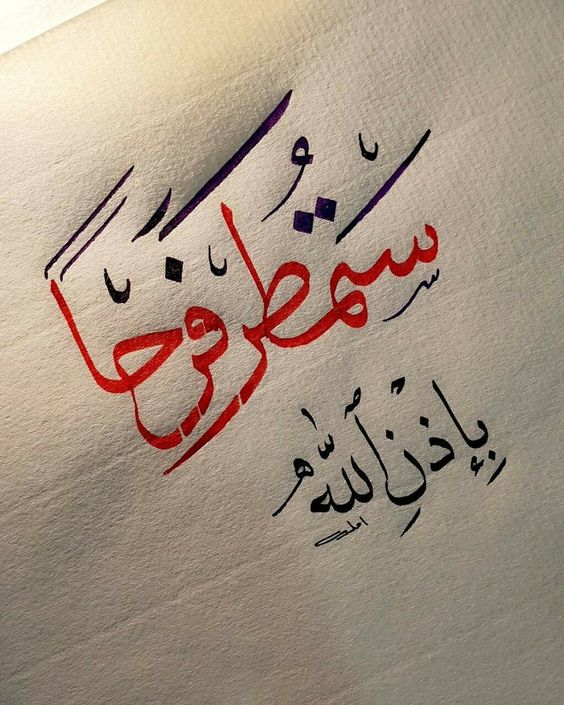 ستُمطرُ فرَحاً
بِإذنِ ٱللَّه